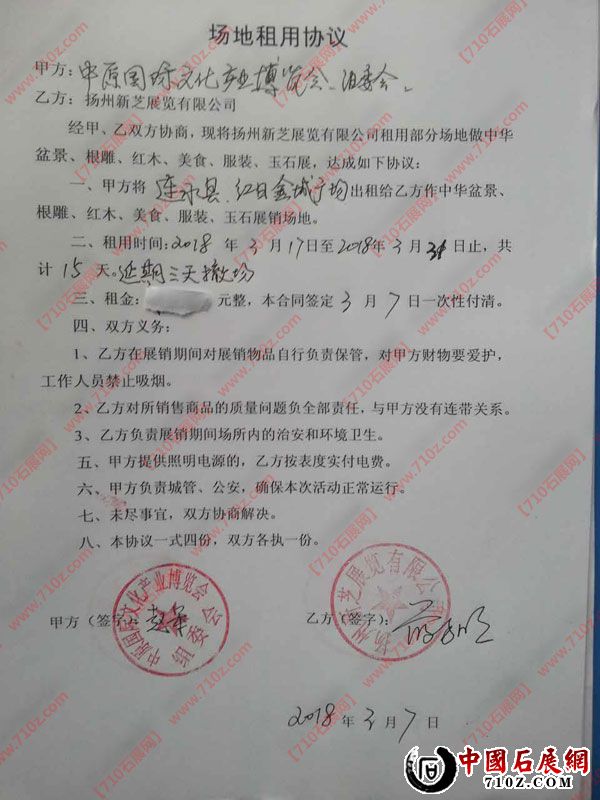 场地租用协议
甲方：中原国际文化产业博览会组委会
乙方：扬州新芝展览有限公司
经甲、乙双方协商，现将扬州新芝展览有限公司租用部分场地做中华
盆景、根雕、红木、美食、服装、玉石展，达成如下协议：
一、甲方将涟水县红日金城广场出租给乙方作中华盆景、
根雕、红木、美食、服装、玉石展销场地。
二、租用时间：2018年3月17日至2018年3月31日止，共
计15天。延期三天撤场
三、租金：元整，本合同签定3月7日一次性付清。
四、双方义务：
1、乙方在展销期间对展销物品自行负责保管，对甲方财物要爱护，
工作人员禁止吸烟。
2、乙方对所销售商品的质量问题负全部责任，与甲方没有连带关系。
3、乙方负责展销期间场所内的治安和环境卫生。
五、甲方提供照明电源的，乙方按表度实付电费。
六、甲方负责城管、公安，确保本次活动正常运行。
七、未尽事宜，双方协商解决。
八、本协议一式四份，双方各执一份。
甲方（签字）：
中原国际文化产业博览会
组委会
乙方（签字）：
扬州新芝展览有限公司
2018年3月7日
【710石展网】www.710z.com
中國石展網
710Z.COM